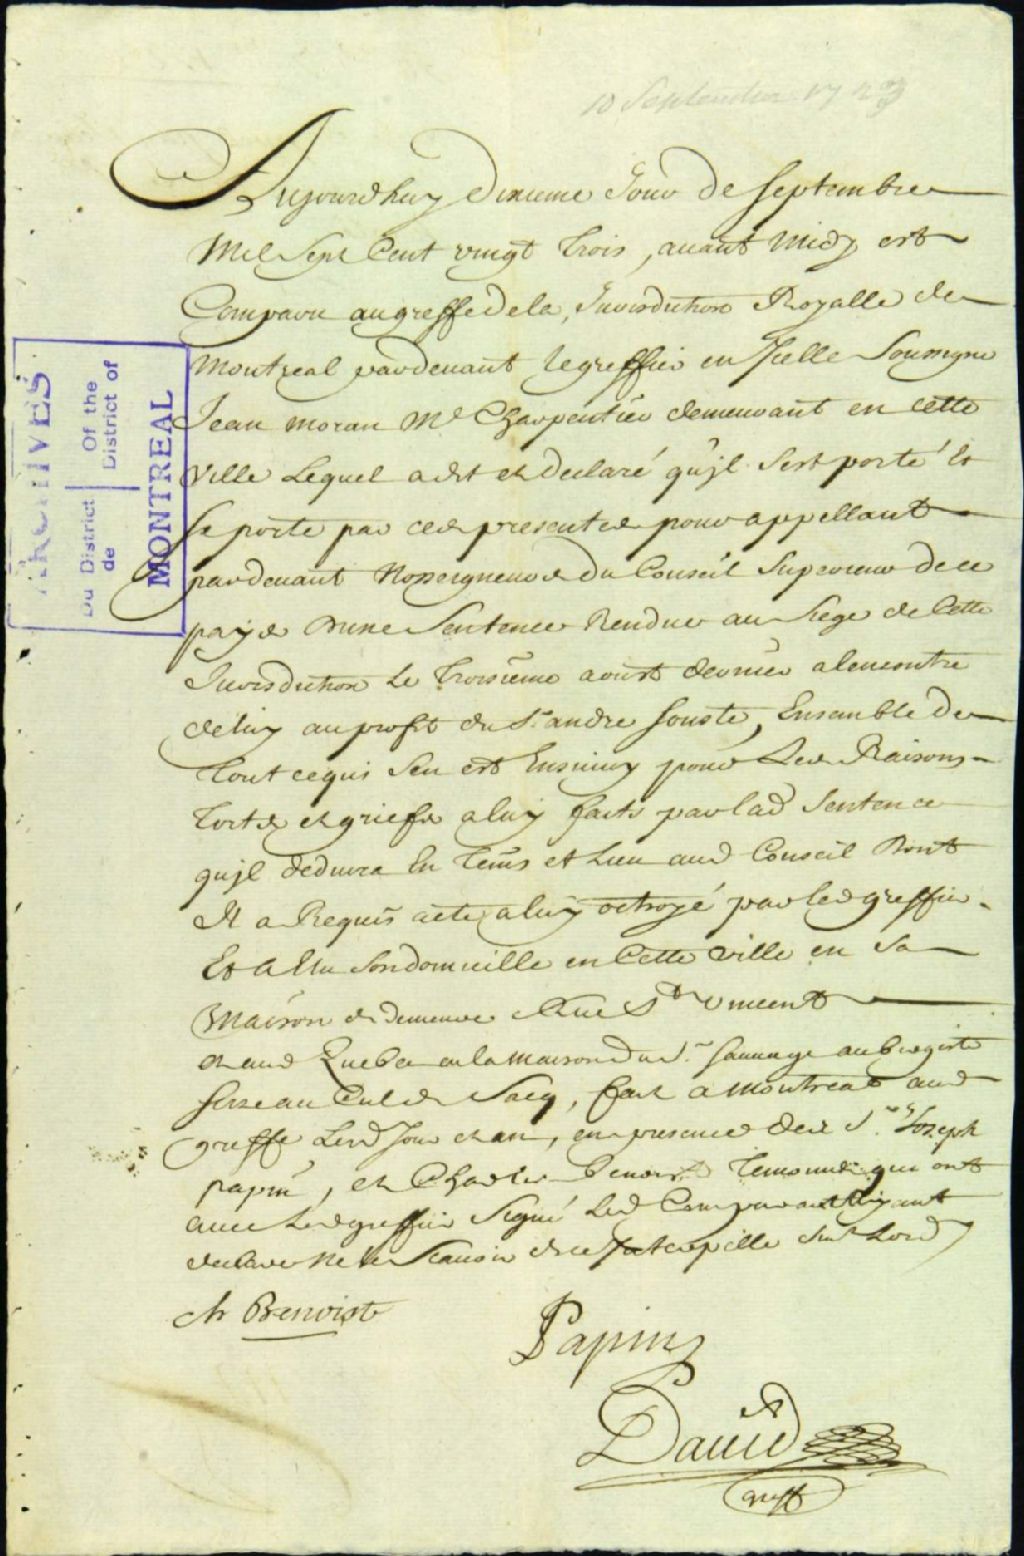 10 September 1723
Aujourdhuy dixieme Jour de septembre
Mil Sept Cent vingt trois, avant midy est
Comparu au greffe de la Jurisdiction Royalle de
Montreal pardevant le greffier en Icelle Soussigné
Jean moran Me Charpentier demeurant en cette
ville Lequel a dit et declaré qu'jl s'est porté Et
se porte par ces presentes pour appellant
pardevant Nosseigneurs du Conseil Superieur de ce
pays Dune Sentence Rendue au Siege de Cette
Jurisdiction Le Troisieme aoust dernier alencontre
de luy au profit du Sr andre souste, Ensemble de
tout ce qui sen est Ensuivy pour Les Raisons
torts et griefs a luy faits par lad Sentence
qu'jl deduira En tems et Lieu aud Conseil Dont
Il a Requis acte a luy octroyé par led greffier
Et a Elu son domicille en Cette ville en Sa
Maison de demeure Rue St vincent
et aud Quebec en la maison du Sr sauvage aubergiste
size au Cul de Sacq, fait a Montreal aud
greffe Lesd Jour et an, en presence des Srs Joseph
papin, et Charles benoist Temoins qui ont
avec Led greffier Signé Led Comparant ayant
declaré ne le Scavoir de ce Interpellé suivt Lord
Ch Benoist
Papin
David
greff
ARCHIVES
Du District Of the
de District of
MONTREAL